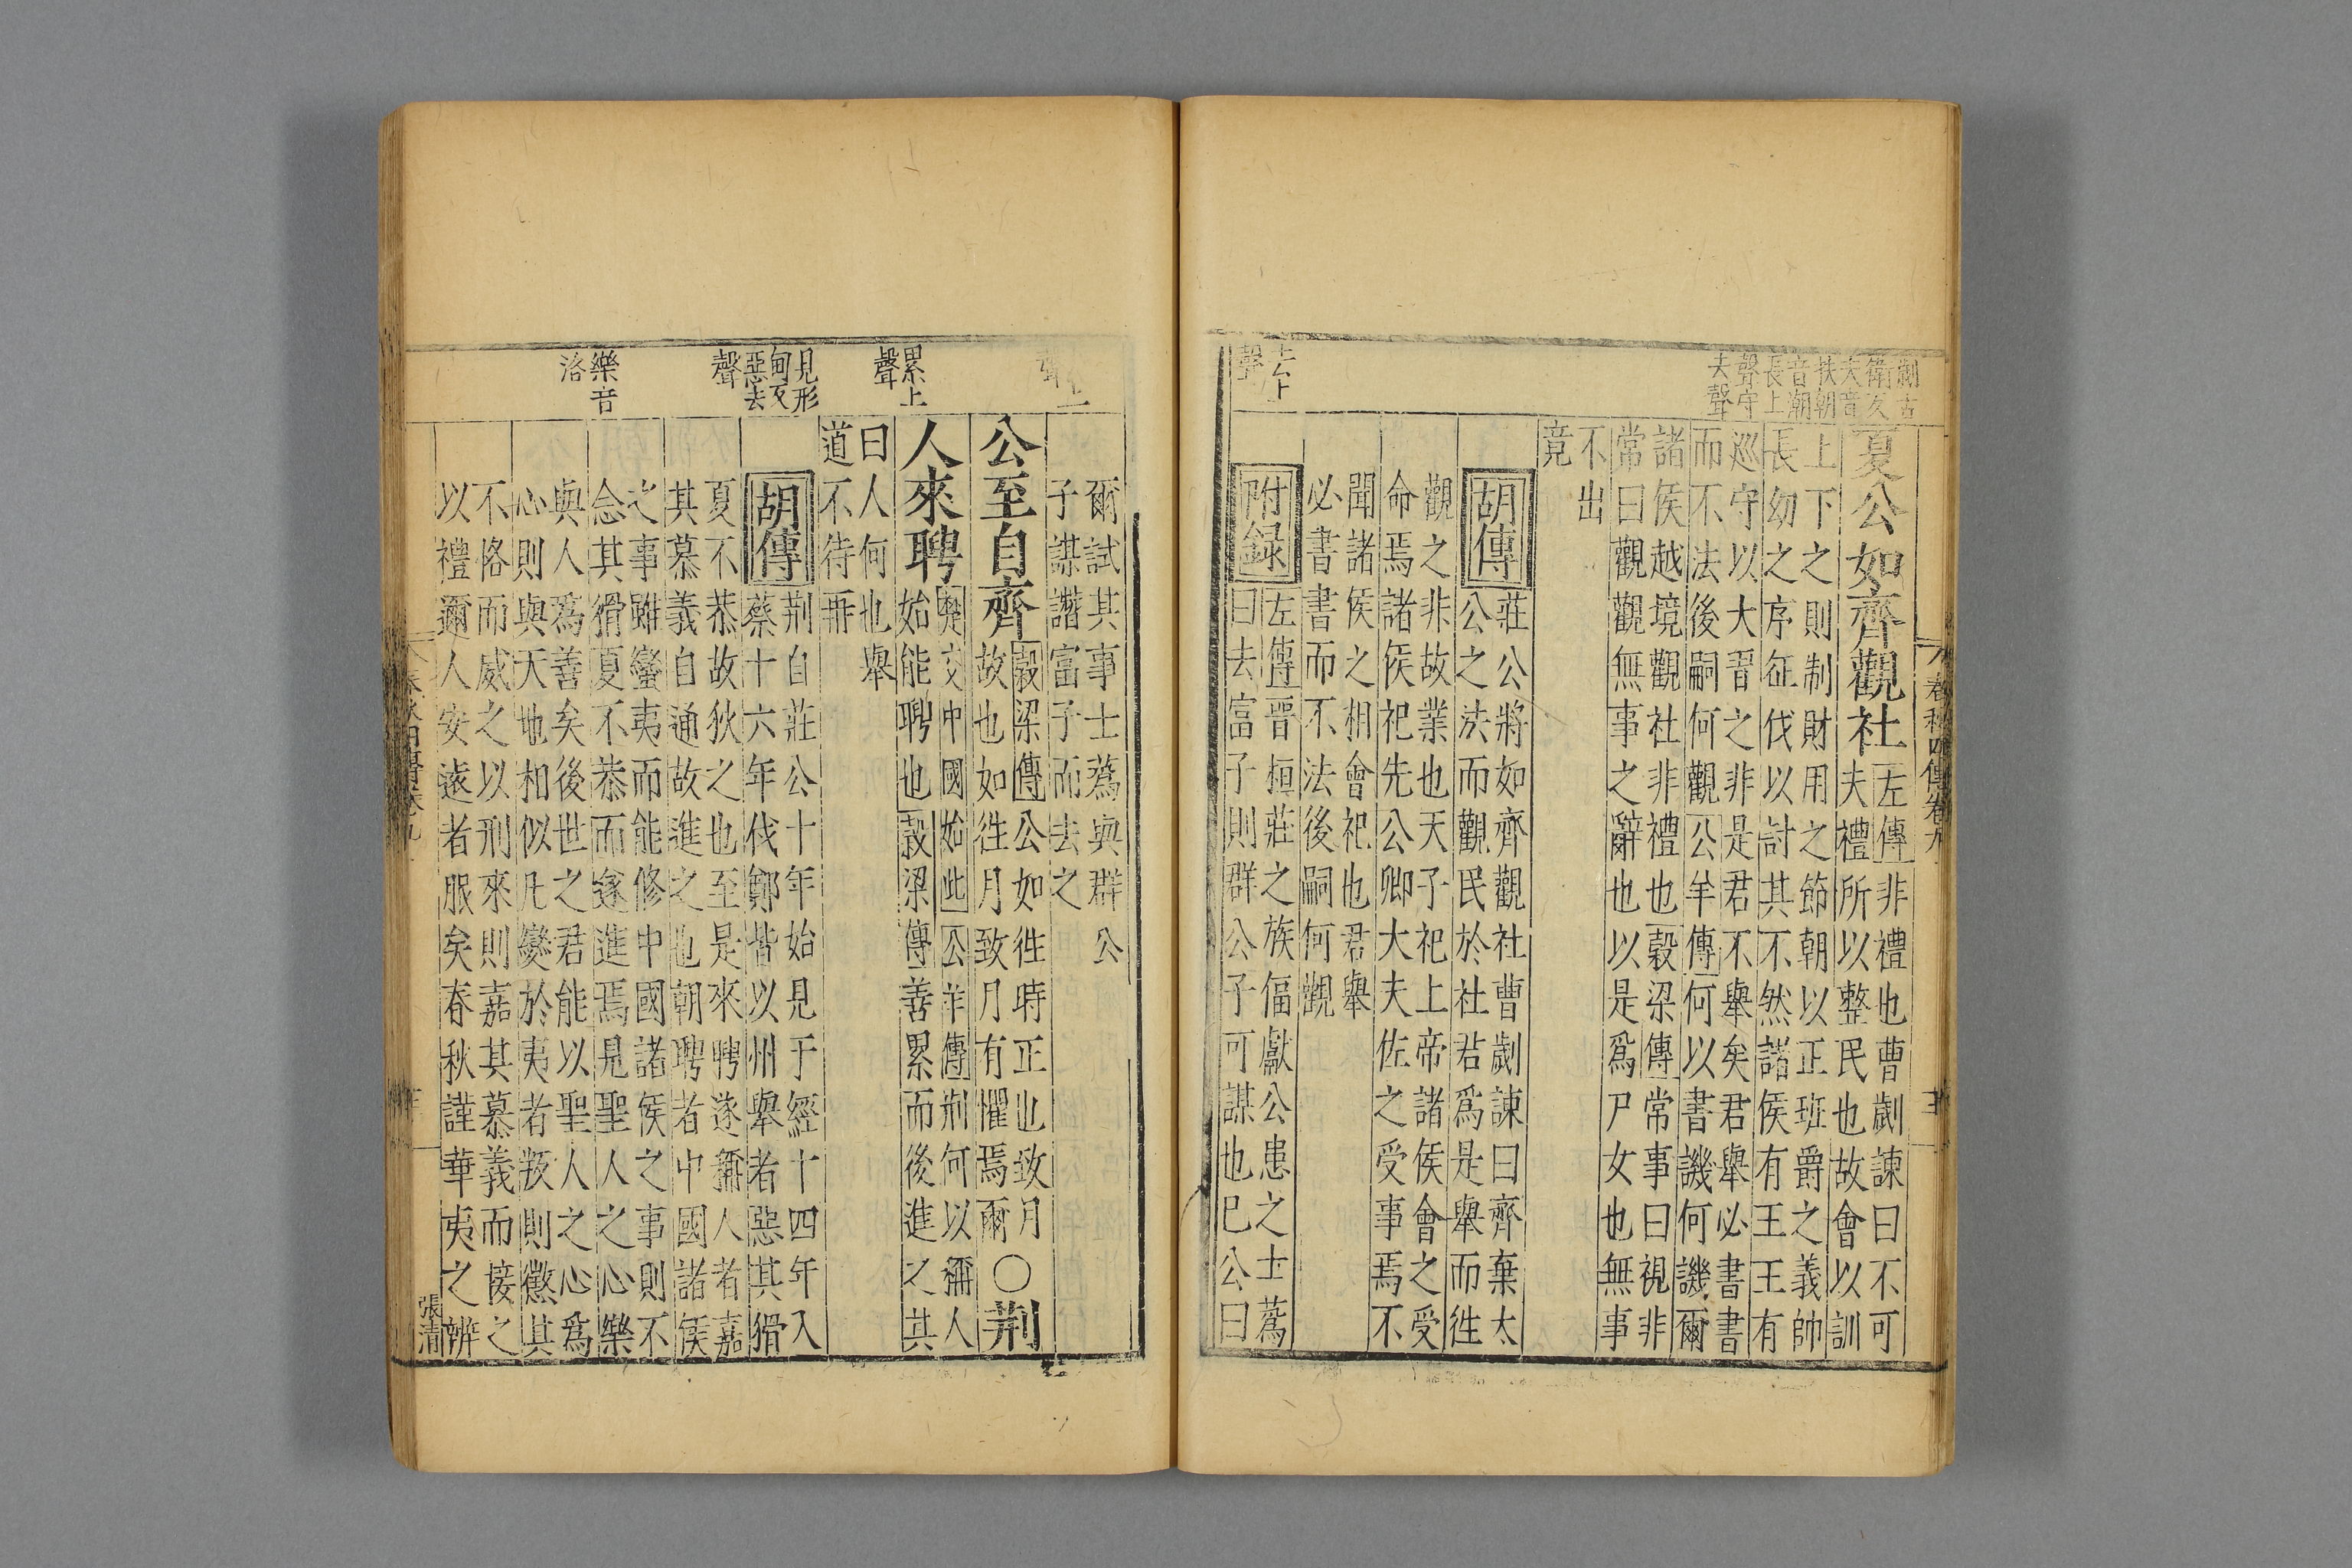 春秋四傳卷九
劌古
衛反
夫音
扶朝
音潮
長上
聲守
去聲
夏公如齊觀社
左傳非禮也曹劌諫曰不可
夫禮所以整民也故會以訓
上下之則制財用之節朝以正班爵之義帥
長幼之序征伐以討其不然諸侯有王王有
巡守以大習之非是君不舉矣君舉必書書
而不法後嗣何觀公羊傳何以書譏何譏爾
諸侯越境觀社非禮也穀梁傳常事曰視非
常曰觀觀無事之辭也以是爲尸女也無事
不出
竟
胡傳
莊公將如齊觀社曹劌諫曰齊棄太
公之法而觀民於社君爲是舉而徃
觀之非故業也天子祀上帝諸侯會之受
命焉諸侯祀先公卿大夫佐之受事焉不
聞諸侯之相會祀也君舉
必書書而不法後嗣何觀
去上
聲
附録
左傳晉桓莊之族偪獻公患之士蔿
曰去富子則群公子可謀也已公曰
上
聲
爾試其事士蔿與群公
子謀譖富子而去之
公至自齊
穀梁傳公如徃時正也致月
故也如徃月致月有懼焉爾
○荆
累上
聲
人來聘
楚交中國始此公羊傳荆何以稱人
始能聘也穀梁傳善累而後進之其
曰人何也舉
道不待再
見形
甸反
惡去
聲
胡傳
荆自莊公十年始見于經十四年入
蔡十六年伐鄭皆以州舉者惡其猾
夏不恭故狄之也至是來聘遂稱人者嘉
其慕義自通故進之也朝聘者中國諸侯
樂音
洛
之事雖蠻夷而能修中國諸侯之事則不
念其猾夏不恭而遂進焉見聖人之心樂
與人爲善矣後世之君能以聖人之心爲
心則與天地相似凡變於夷者叛則懲其
不恪而威之以刑來則嘉其慕義而接之
以禮邇人安遠者服矣春秋謹華夷之辨
張清